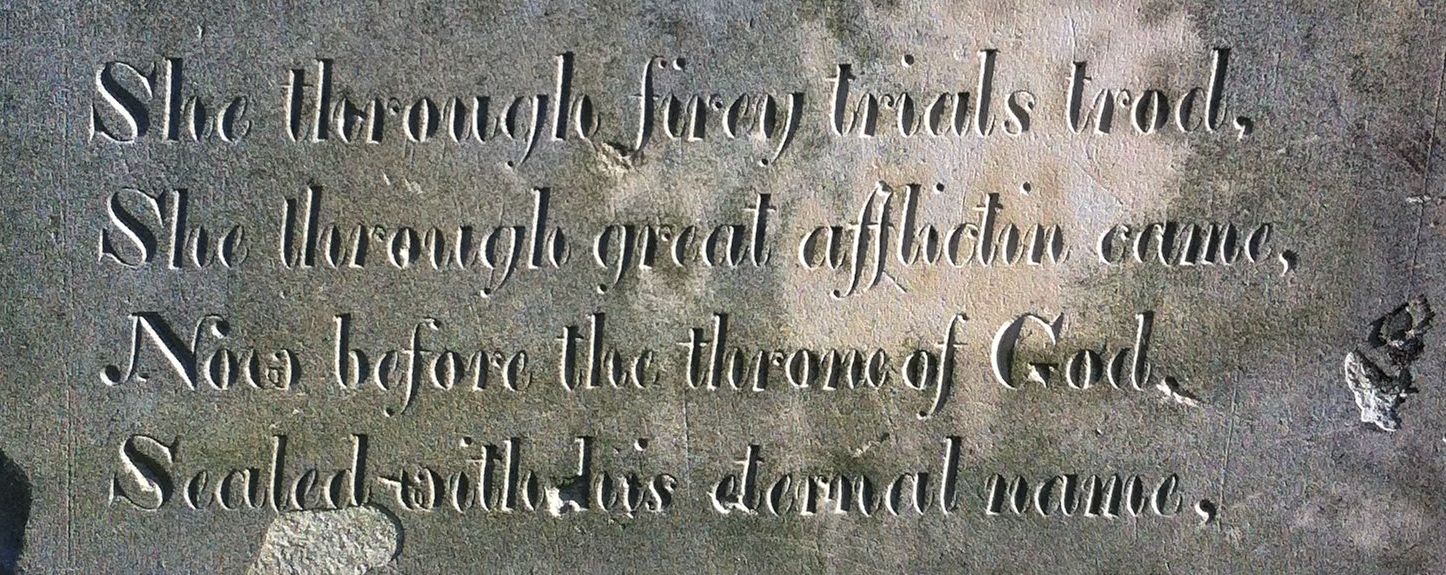 She through firey trials trod,
She through great affliction came,
Now before the throne of God,
Sealed with his eternal name,